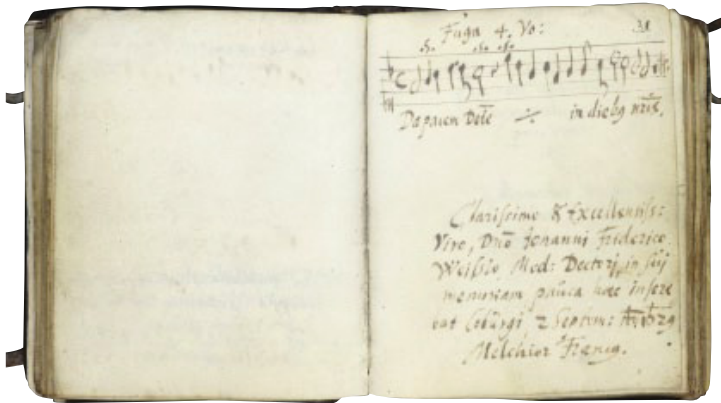 Fuga 4. Vo:
Da pacem Dñe ·/· in diebꝯ nr̃is.
Clarissimo & Excellentiss:
Viro, Dño Johanni Friderico
Weissio, Med: Doctori, in sui
memoriam pauca haec insere
bat Coburgi, 2 Septem:
Melchior Franck.